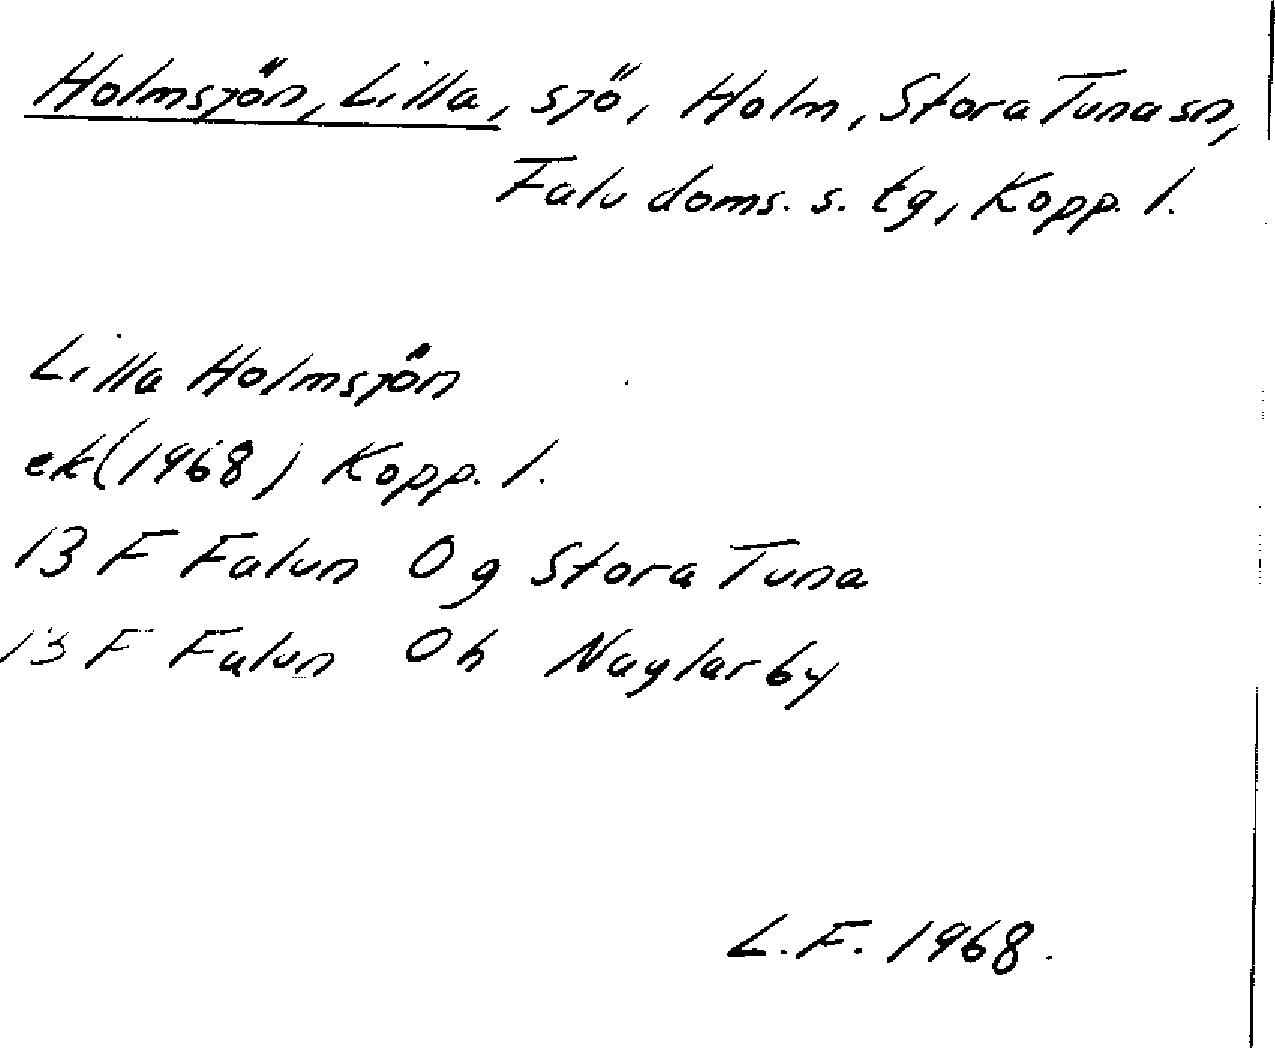 Holmsjön, Lilla, sjö, Holm, Stora Tuna sn,
Falu doms. s. tg, Kopp. l.
Lilla Holmsjön
ek (1968) Kopp. l.
13 F Falun 0 g Stora Tuna
13 F Falun 0 h Naglarby
L.F. 1968.